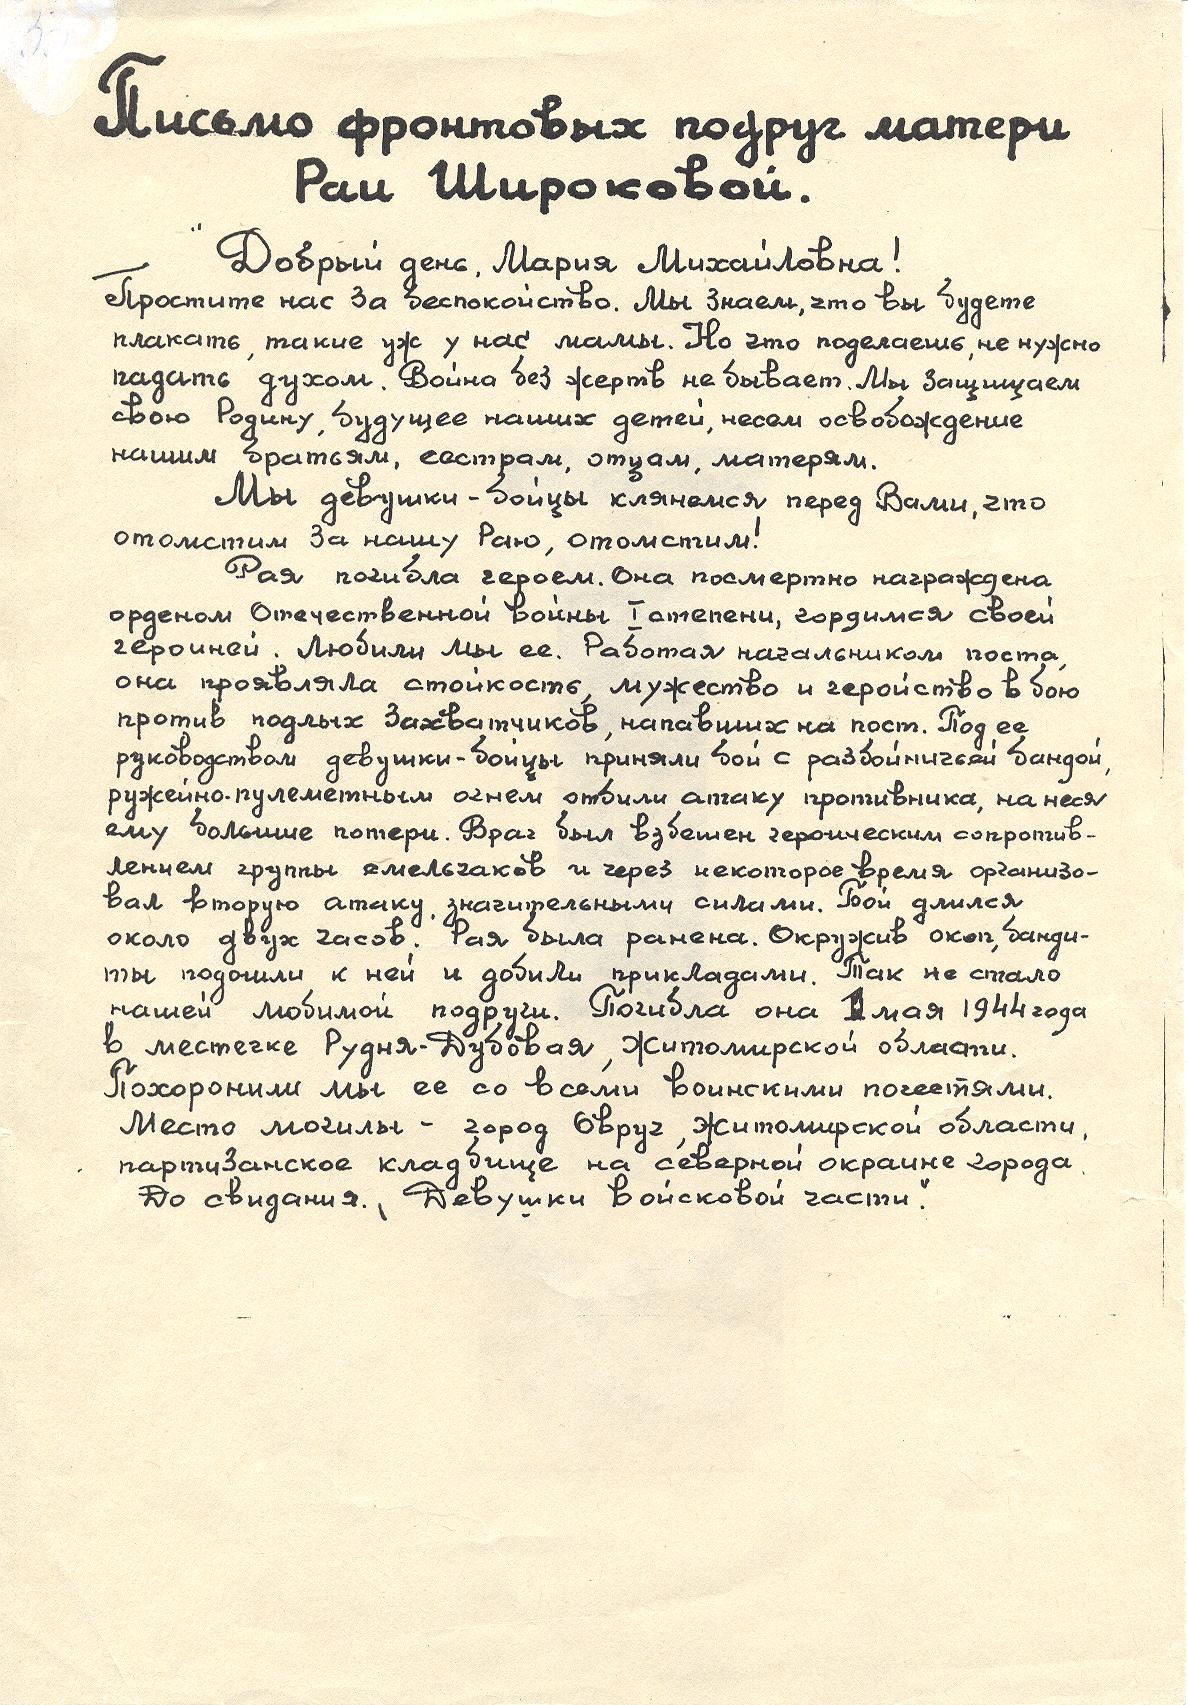 Письмо фронтовых подруг матери
Раи Широковой.
"Добрый день, Мария Михайловна!
Простите нас за беспокойство. Мы знаем, что вы будете
плакать, такие уж у нас мамы. Но что поделаешь, не нужно
падать духом. Война без жертв не бывает. Мы защищаем
свою Родину, будущее наших детей, несем освобождение
нашим братьям, сестрам, отцам, матерям.
Мы девушки-бойцы клянемся перед Вами, что
отомстим за нашу Раю, отомстим!
Рая погибла героем. Она посмертно награждена
орденом Отечественной войны I степени, гордимся своей
героиней. Любили мы ее. Работая начальником поста,
она проявляла стойкость, мужество и геройство в бою
против подлых захватчиков, напавших на пост. Под ее
руководством девушки-бойцы приняли бой с разбойничьей бандой,
ружейно-пулеметным огнем отбили атаку противника, нанеся
ему большие потери. Враг был взбешен героическим сопротив-
лением группы смельчаков и через некоторое время организо-
вал вторую атаку, значительными силами. Бой длился
около двух часов. Рая была ранена. Окружив окоп, банди-
ты подошли к ней и добили прикладами. Так не стало
нашей любимой подруги. Погибла она 1 мая 1944 года
в местечке Рудня-Дубовая, Житомирской области.
Похоронили мы ее со всеми воинскими почестями.
Место могилы - город Овруч, Житомирской области,
партизанское кладбище на северной окраине города.
До свидания. Девушки войсковой части".